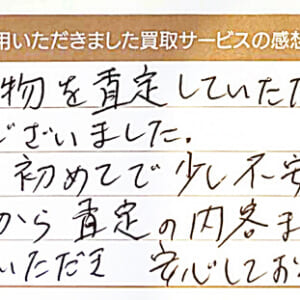 用いただきました買取サービスの感想
物を査定していただ
ございました.
初めてで少し不安
から査定の内容ま
いただき 安心してお